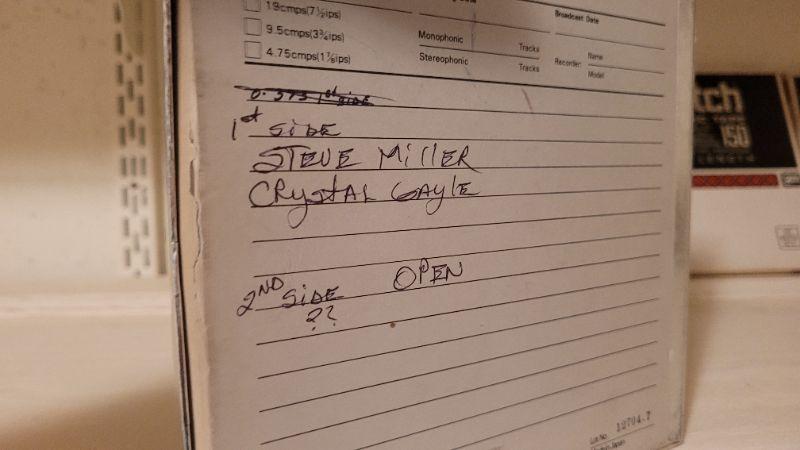 19cmps(7½ips)
Broadcast Date
9.5cmps(3¾ips)
Monophonic Tracks
Name
4.75cmps(1⅞ips)
Stereophonic Tracks
Recorder: Model
0-375 1st side
1st SIDE
STEVE MILLER
CRYSTAL GAYLE
2ND SIDE OPEN
??
Lot No. 12704.7
Japan
tch
150
LENGTH